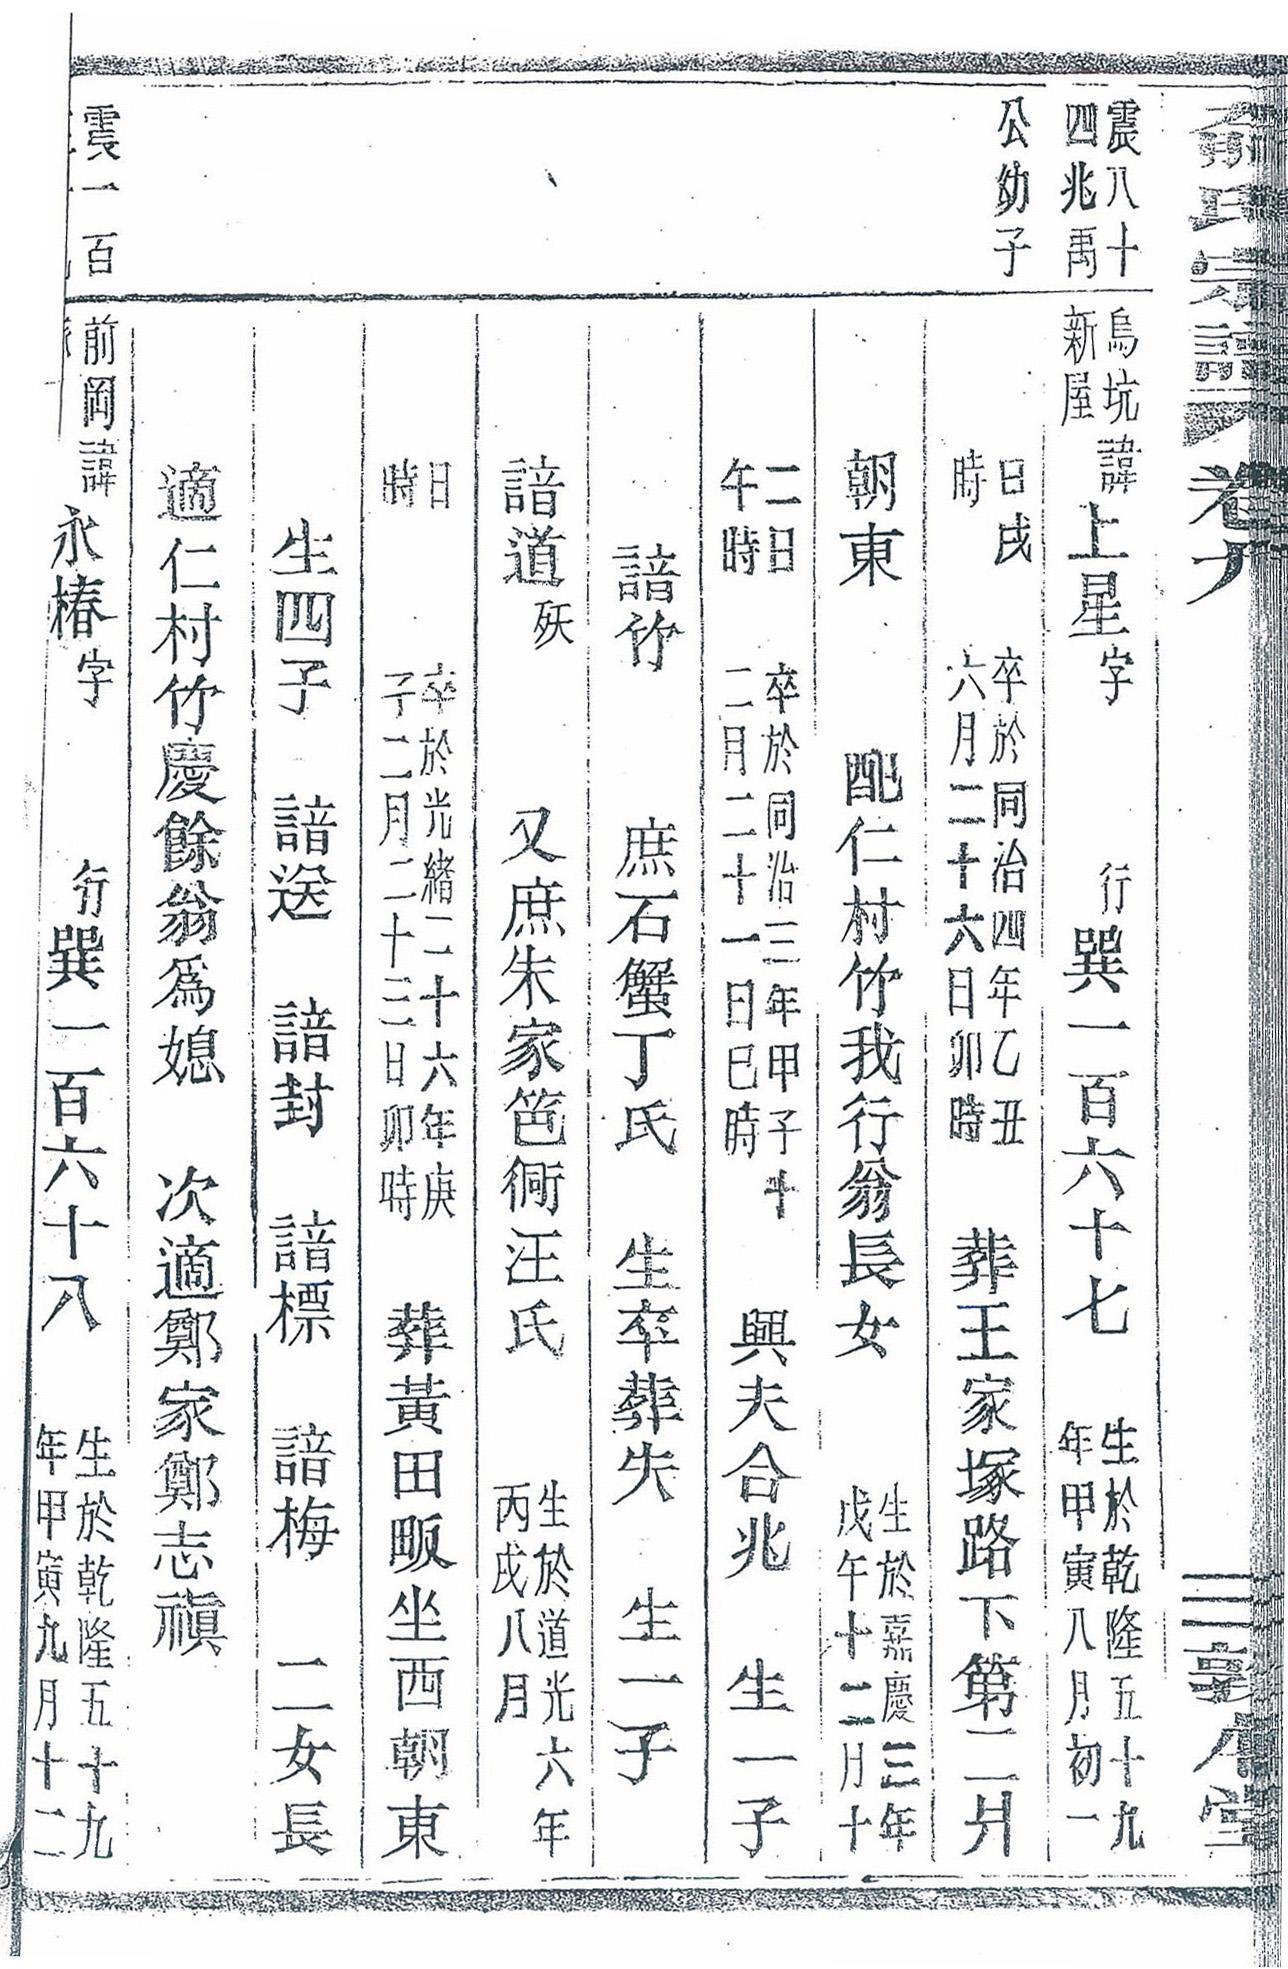 俞氏宗譜 卷九 三 敦 堂
震八十
四兆禹
公幼子
烏坑
新屋
諱上星字 行巽一百六十七 生於乾隆五十九
年甲寅八月初一
日戌
時
卒於同治四年乙丑
六月二十六日卯時
葬王家塚路下第二爿
朝東 配仁村竹我行翁長女 生於嘉慶三年
戊午十二月十
二日
午時
卒於同治三年甲子十
二月二十一日巳時
興夫合兆 生一子
諳竹 庶石蟹丁氏 生卒葬失 生一子
諳道 殀 又庶朱家笆衕汪氏 生於道光六年
丙戌八月
日
時
卒於光緒二十六年庚
子二月二十三日卯時
葬黃田畈坐西朝東
生四子 諳送 諳封 諳標 諳梅 二女長
適仁村竹慶餘翁爲媳 次適鄭家鄭志禛
震一百
前岡
諱永椿字 行巽一百六十八 生於乾隆五十九
年甲寅九月十二